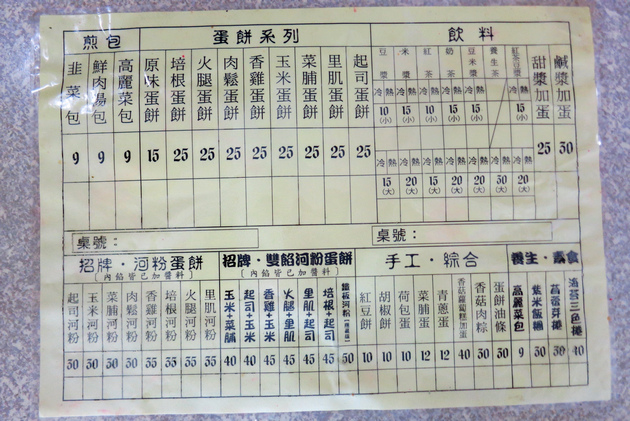 煎包
韭菜包 9
鮮肉湯包 9
高麗菜包 9
蛋餅系列
原味蛋餅 15
培根蛋餅 25
火腿蛋餅 25
肉鬆蛋餅 25
香雞蛋餅 25
玉米蛋餅 25
菜脯蛋餅 25
里肌蛋餅 25
起司蛋餅 25
飲料
豆漿 冷 熱 10(小) 冷 熱 15(大)
米漿 冷 熱 15(小) 冷 熱 20(大)
紅茶 冷 熱 10(小) 冷 熱 15(大)
奶茶 冷 熱 15(小) 冷 熱 20(大)
豆米漿 冷 熱 15(小) 冷 熱 20(大)
養生茶 冷 熱 30(大)
紅茶豆漿 冷 熱 15(小) 冷 熱 20(大)
甜漿加蛋 25
鹹漿加蛋 30
桌號:
桌號:
招牌・河粉蛋餅
(內餡皆已加醬料)
起司河粉 30
玉米河粉 30
菜脯河粉 30
肉鬆河粉 30
香雞河粉 35
培根河粉 35
火腿河粉 35
里肌河粉 35
招牌・雙餡河粉蛋餅
(內餡皆已加醬料)
玉米+菜脯 40
起司+玉米 40
香雞+玉米 45
火腿+里肌 45
里肌+起司 45
培根+起司 45
河粉 50
手工・綜合
紅豆餅 10
胡椒餅 10
荷包蛋 10
菜脯蛋 12
青蔥蛋 12
香菇蘿蔔糕加蛋 40
香菇肉粽 30
蛋餅油條 30
養生・素食
高麗菜包 9
紫米飯糰 30
苜蓿芽捲 30
海苔三色捲 40